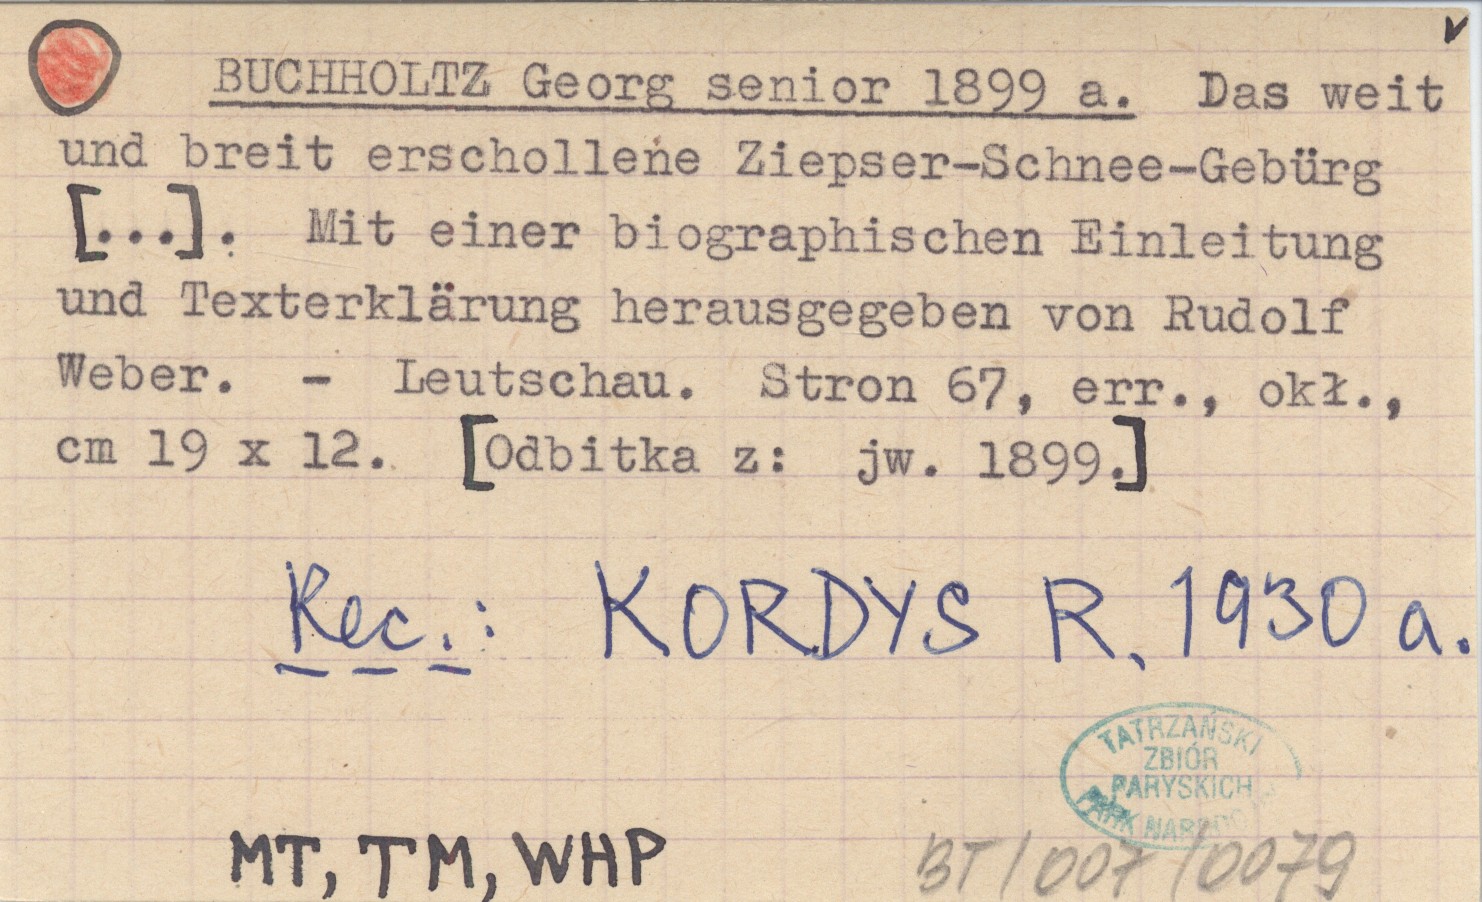 BUCHHOLTZ Georg senior 1899 a. Das weit
und breit erschollene Ziepser-Schnee-Gebürg
[...]. Mit einer biographischen Einleitung
und Texterklärung herausgegeben von Rudolf
Weber. - Leutschau. Stron 67, err., okł.,
cm 19 x 12. [Odbitka z: jw. 1899.]
Rec.: KORDYS R. 1930 a.
TATRZAŃSKI
ZBIÓR
PARYSKICH
PARK NARODOWY
MT, TM, WHP
BT/007/0079